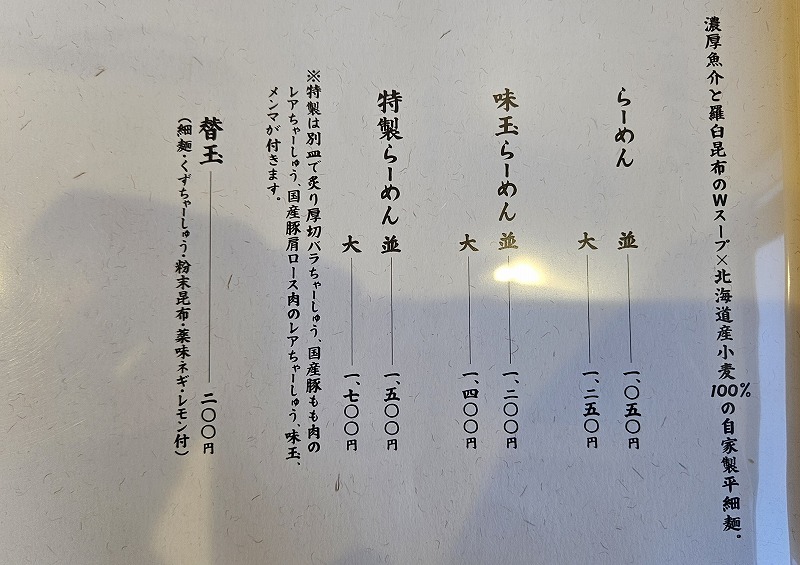 濃厚魚介と羅臼昆布のWスープ×北海道産小麦100%の自家製平細麺。
らーめん
並 一、〇五〇円
大 一、二五〇円
味玉らーめん
並 一、二〇〇円
大 一、四〇〇円
特製らーめん
並 一、五〇〇円
大 一、七〇〇円
※特製は別皿で炙り厚切バラちゃーしゅう、国産豚もも肉の
レアちゃーしゅう、国産豚肩ロース肉のレアちゃーしゅう、味玉、
メンマが付きます。
替玉 二〇〇円
(細麺・くずちゃーしゅう・粉末昆布・薬味ネギ・レモン付)